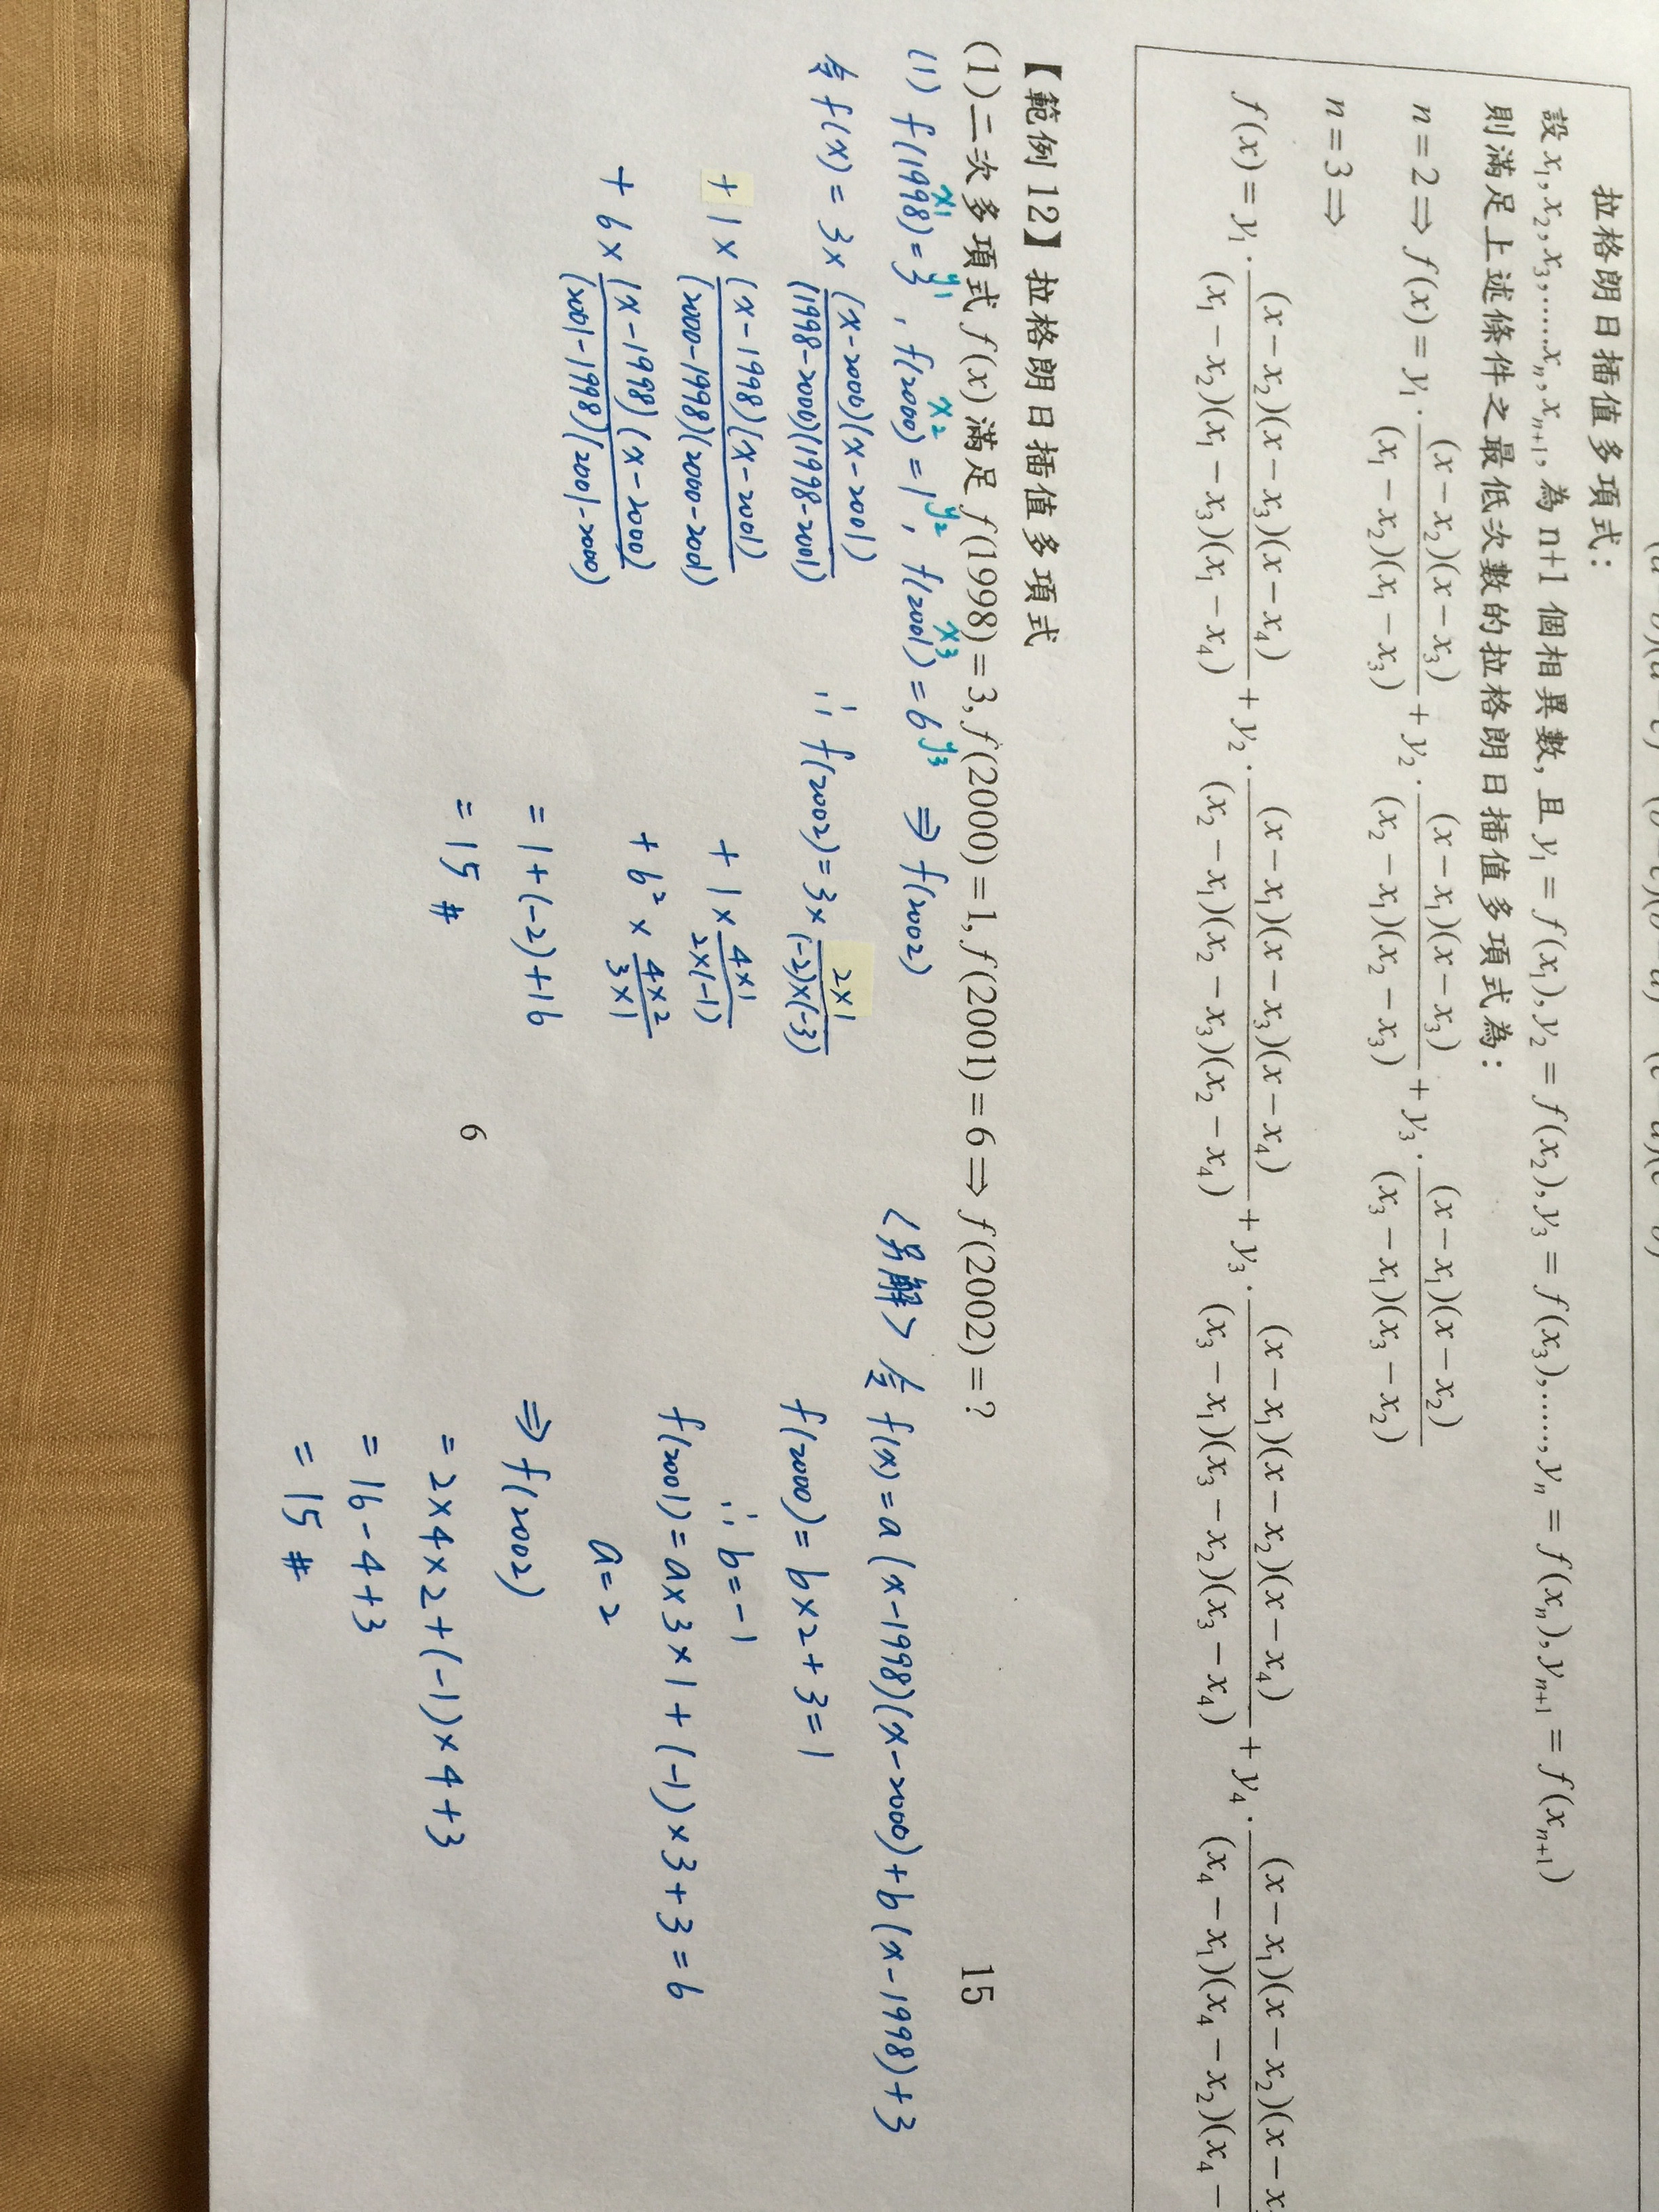 拉格朗日插值多項式：
設 x₁, x₂, x₃,……xₙ, xₙ₊₁, 為 n+1 個相異數, 且 y₁ = f(x₁), y₂ = f(x₂), y₃ = f(x₃),……, yₙ = f(xₙ), yₙ₊₁ = f(xₙ₊₁)
則滿足上述條件之最低次數的拉格朗日插值多項式為：
n = 2 ⇒ f(x) = y₁ · (x − x₂)(x − x₃) / (x₁ − x₂)(x₁ − x₃) + y₂ · (x − x₁)(x − x₃) / (x₂ − x₁)(x₂ − x₃) + y₃ · (x − x₁)(x − x₂) / (x₃ − x₁)(x₃ − x₂)
n = 3 ⇒
f(x) = y₁ · (x − x₂)(x − x₃)(x − x₄) / (x₁ − x₂)(x₁ − x₃)(x₁ − x₄) + y₂ · (x − x₁)(x − x₃)(x − x₄) / (x₂ − x₁)(x₂ − x₃)(x₂ − x₄) + y₃ · (x − x₁)(x − x₂)(x − x₄) / (x₃ − x₁)(x₃ − x₂)(x₃ − x₄) + y₄ · (x − x₁)(x − x₂)(x − x / (x₄ − x₁)(x₄ − x₂)(x₄ −
【範例 12】拉格朗日插值多項式
(1)二次多項式 f(x) 滿足 f(1998) = 3, f(2000) = 1, f(2001) = 6 ⇒ f(2002) = ? 15
x₁ y₁ x₂ y₂ x₃ y₃
(1) f(1998) = 3, f(2000) = 1, f(2001) = 6 ⇒ f(2002)
令 f(x) = 3× (x−2000)(x−2001) / (1998−2000)(1998−2001)
+ 1× (x−1998)(x−2001) / (2000−1998)(2000−2001)
+ 6× (x−1998)(x−2000) / (2001−1998)(2001−2000)
∴ f(2002) = 3× 2×1 / (−2)×(−3)
+ 1× 4×1 / 2×(−1)
+ 6² × 4×2 / 3×1
= 1+(−2)+16
= 15 #
〈另解〉 令 f(x) = a(x−1998)(x−2000)+b(x−1998)+3
f(2000) = b×2+3=1
∴ b=−1
f(2001) = a×3×1+(−1)×3+3=6
a=2
⇒ f(2002)
= 2×4×2+(−1)×4+3
= 16−4+3
= 15 #
6